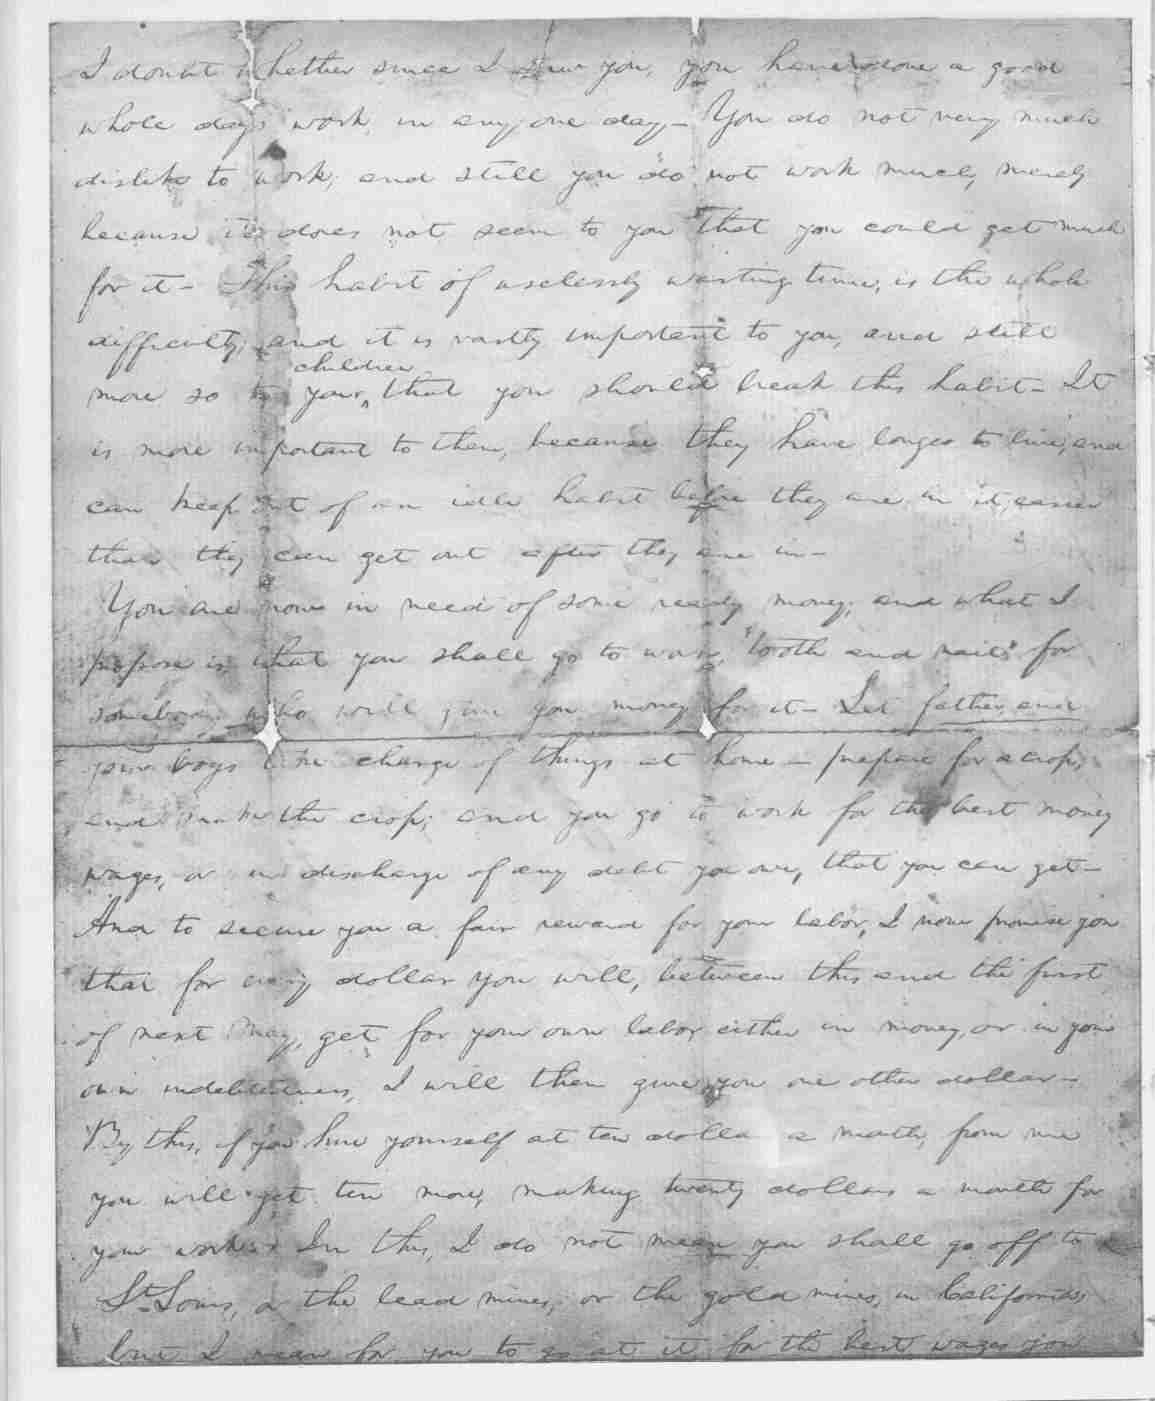 I doubt whether since I saw you, you have done a good
whole day's work, in any one day - You do not very much
dislike to work; and still you do not work much, merely
because it does not seem to you that you could get much
for it - This habit of uselessly wasting time, is the whole
difficulty; and it is vastly important to you, and still
children
more so to your, that you should break this habit - It
is more important to them, because they have longer to live, and
can keep out of an idle habit before they are in it, easier
than they can get out after they are in -
You are now in need of some ready money; and what I
propose is, that you shall go to work, "tooth and nails" for
somebody who will give you money for it - Let father and
your boys take charge of things at home - prepare for a crop,
and make the crop; and you go to work for the best money
wages, or in discharge of any debt you owe, that you can get -
And to secure you a fair reward for your labor, I now promise you
that for every dollar you will, between this and the first
of next May, get for your own labor either in money, or in your
own indebtedness, I will then give you one other dollar -
By this, if you hire yourself at ten dolla a month, from me
you will get ten more, making twenty dollars a month for
your work - In this, I do not mean you shall go off to
St. Louis, or the lead mines, or the gold mines, in California,
but I mean for you to go at it for the best wages you